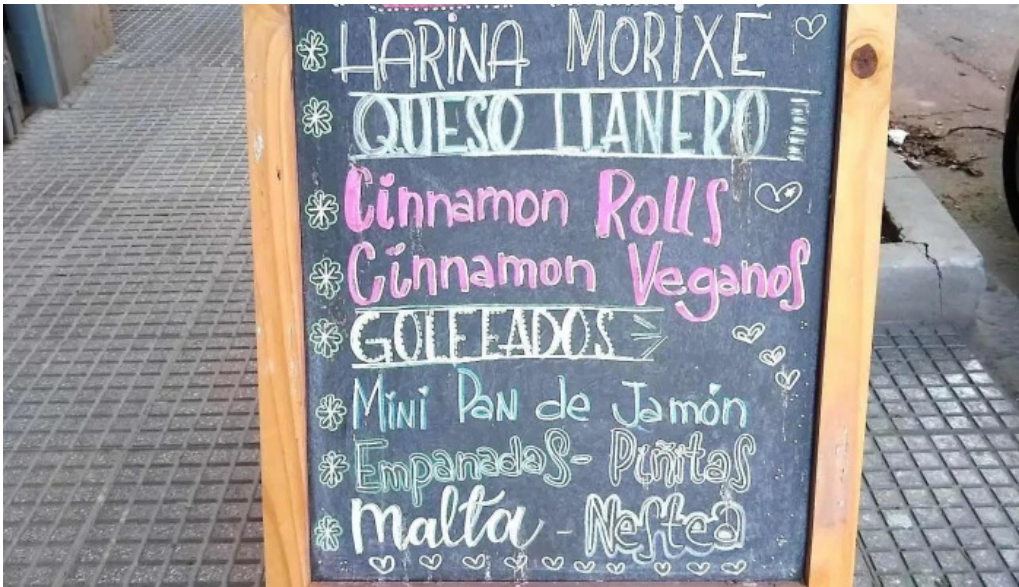 HARINA MORIXE
QUESO LLANERO
Cinnamon Rolls
Cinnamon Veganos
GOLFEADOS
Mini Pan de Jamón
Empanadas - Piñitas
Malta - Nestea